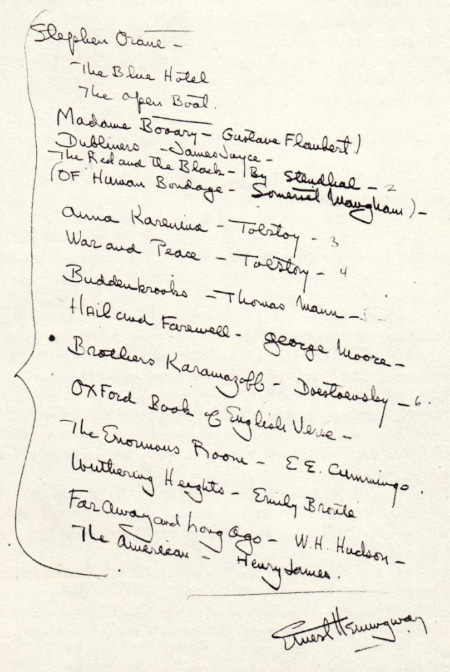 Stephen Crane -
The Blue Hotel
The Open Boat.
Madame Bovary - Gustave Flaubert)
Dubliners - James Joyce -
The Red and the Black - By Stendhal - 2
(OF Human Bondage - Somerset Maugham) -
Anna Karenina - Tolstoy - 3
War and Peace - Tolstoy - 4
Buddenbrooks - Thomas Mann - 5
Hail and Farewell - George Moore -
Brothers Karamazoff - Doestoevsky - 6.
Oxford Book of English Verse -
The Enormous Room - E.E. Cummings.
Wuthering Heights - Emily Bronte
Far Away and Long Ago - W.H. Hudson -
The American - Henry James.
Ernest Hemingway